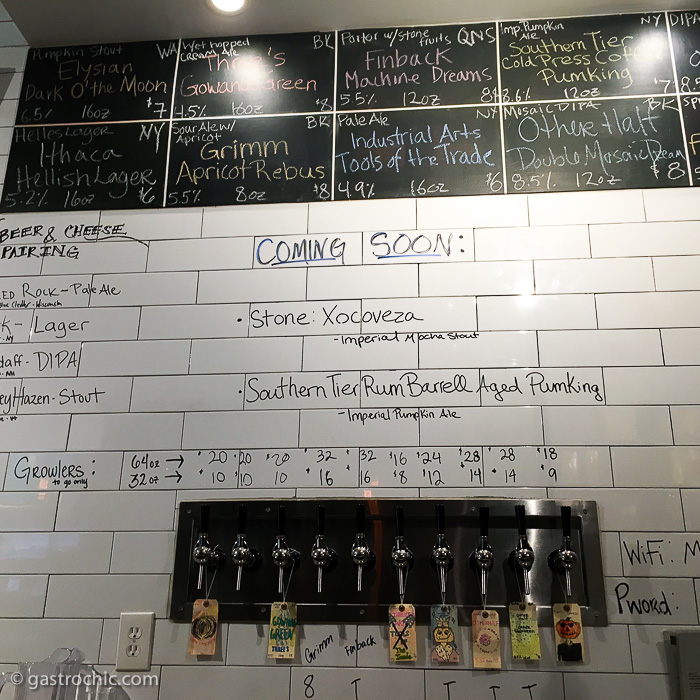 Pumpkin Stout WA
Elysian
Dark O' the Moon
6.5% 16oz $7
Wet hopped BK
Cream Ale
Three's
Gowanus Green
4.5% 16oz $8
Porter w/stone fruits QNS
Finback
Machine Dreams
5.5% 12oz
Imp. Pumpkin NY
Ale
Southern Tier
Cold Press Coffee
Pumking
8.6% 12oz $7
DIPA
Helles Lager NY
Ithaca
Hellish Lager
5.2% 16oz $6
Sour Ale w/ BK
Apricot
Grimm
Apricot Rebus
5.5% 8oz $8
Pale Ale NY
Industrial Arts
Tools of the Trade
4.9% 16oz $6
Mosaic DIPA BK
Other Half
Double Mosaic Dream
8.5% 12oz $8
BEER & CHEESE
PAIRING
COMING SOON:
Rock - Pale Ale
Lager
- DIPA
Hazen - Stout
• Stone: Xocoveza
- Imperial Mocha Stout
• Southern Tier Rum Barrell Aged Pumking
- Imperial Pumpkin Ale
Growlers:
to go only
64oz → $20 $20 $20 $32 $32 $16 $24 $28 $28 $18
32oz → $10 10 10 $16 16 $8 $12 $14 $14 $9
WiFi: M
Pword:
Grimm
Finback
8
© gastrochic.com